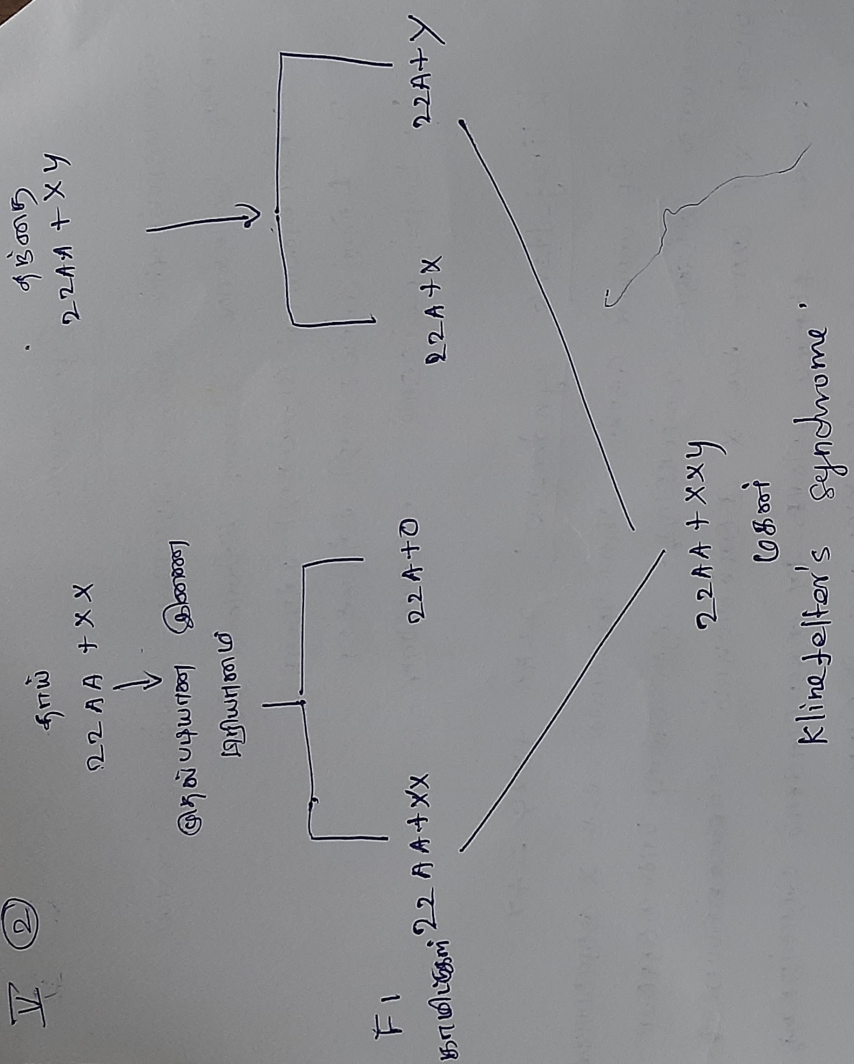 V ②
தாய்
22AA + XX
முதல்படியான இணை
பிரியாமை
தந்தை
22AA + XY
F1
காமிட்கள்
22 AA+XX
22A+O
22A+X
22A+Y
22AA + XXY
மகன்
Klinefelter's syndrome'